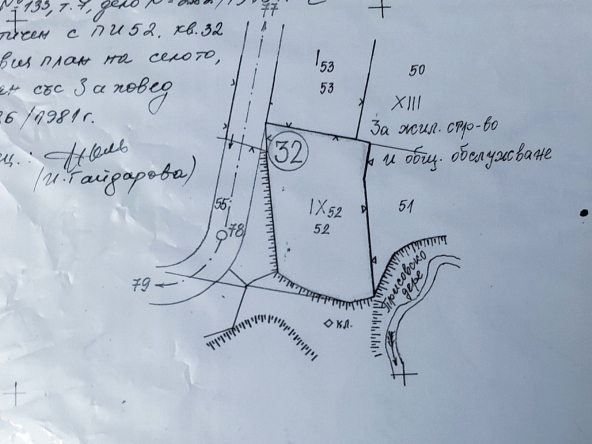 № 133, т. 7, дело №
тичен с ПИ 52, кв. 32
план на селото,
ен със Заповед
/1981 г.
(И. Гайдарова)
77
I 53
53
50
XIII
За жил. стр-во
и общ. обслужване
32
IX 52
52
51
55
78
79
Присовско
дере
кл.